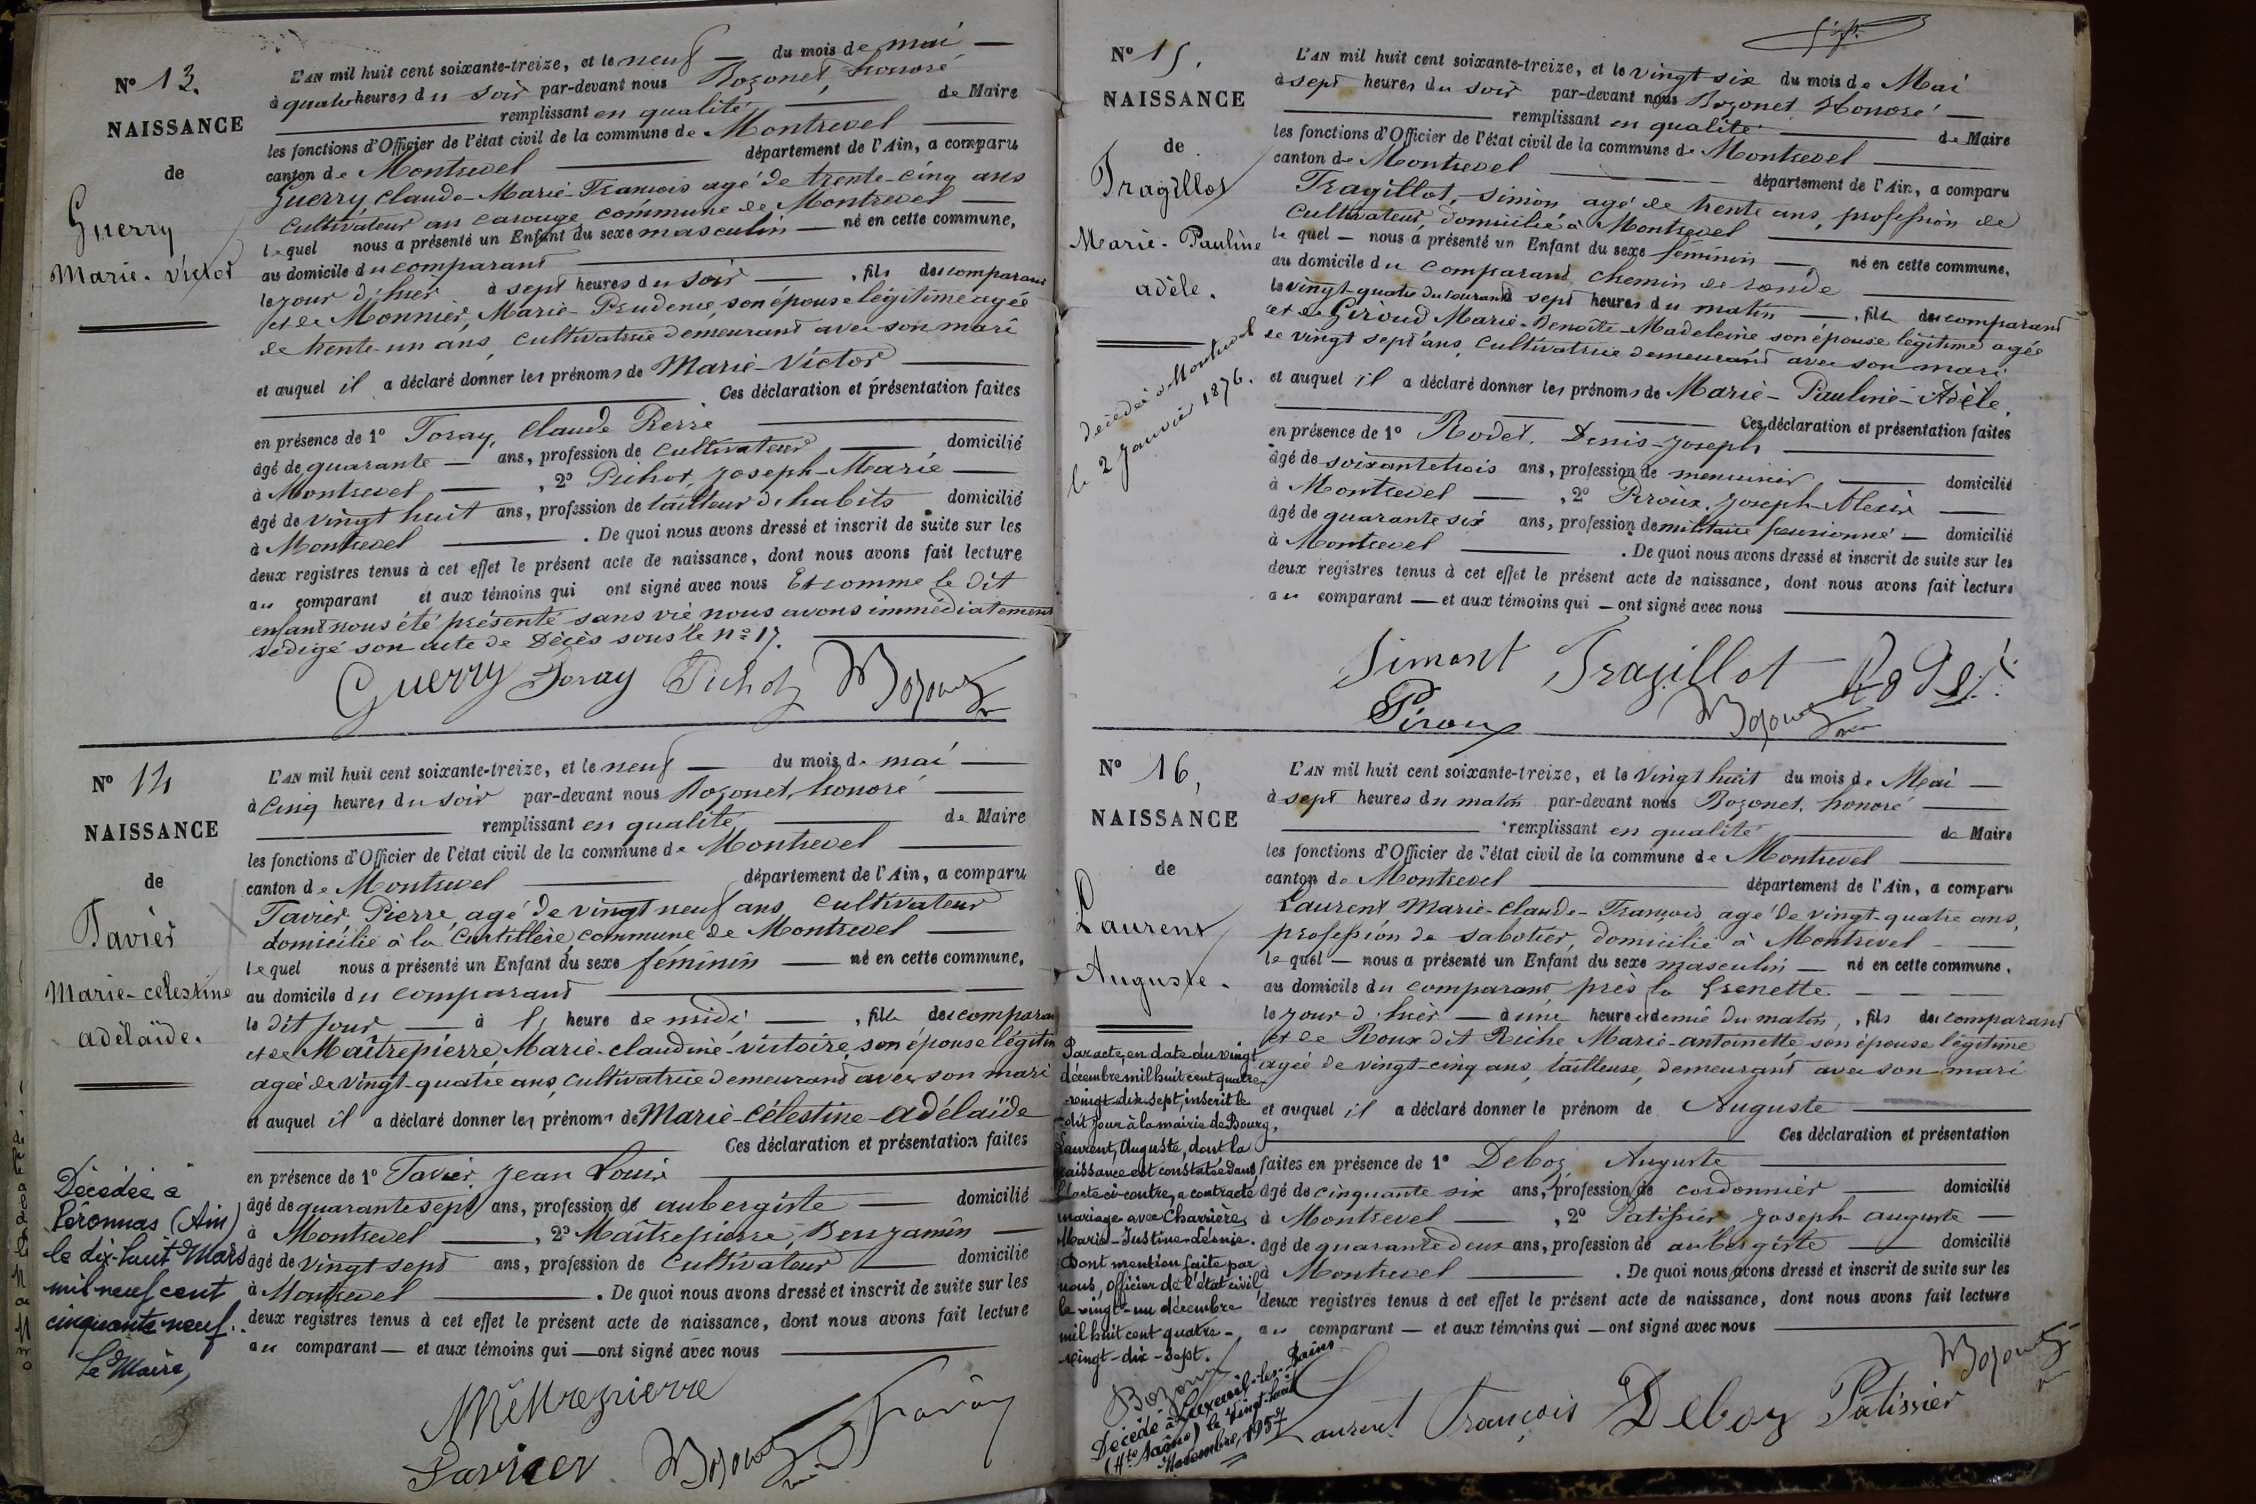 N° 13.
NAISSANCE
de
Guerry
Marie-Victor
L'AN mil huit cent soixante-treize, et le neuf du mois de mai
à quatre heures du soir par-devant nous Bozonet, honoré
remplissant en qualité de Maire
les fonctions d'Officier de l'état civil de la commune de Montrevel
canton de Montrevel département de l'Ain, a comparu
Guerry Claude-Marie-François agé de trente-cinq ans
Cultivateur au carouge commune de Montrevel
lequel nous a présenté un Enfant du sexe masculin né en cette commune,
au domicile du comparant
le jour d'hier à sept heures du soir , fils du comparant
et de Monnier, Marie-Prudence, son épouse légitime agée
de trente-un ans, cultivatrice demeurant avec son mari
et auquel il a déclaré donner les prénoms de Marie-Victor
Ces déclaration et présentation faites
en présence de 1° Toray, Claude Pierre
âgé de quarante ans, profession de cultivateur domicilié
à Montrevel , 2° Pichot, Joseph-Marie
âgé de vingt huit ans, profession de tailleur d'habits domicilié
à Montrevel . De quoi nous avons dressé et inscrit de suite sur les
deux registres tenus à cet effet le présent acte de naissance, dont nous avons fait lecture
au comparant et aux témoins qui ont signé avec nous Et comme le dit
enfant nous été présenté sans vie nous avons immédiatement
rédigé son acte de Décès sous le N° 17.
Guerry Toray Pichot Bozonet
N° 14
NAISSANCE
de
Tavier
Marie-célestine
adélaïde.
L'AN mil huit cent soixante-treize, et le neuf du mois de mai
à cinq heures du soir par-devant nous Bozonet, honoré
remplissant en qualité de Maire
les fonctions d'Officier de l'état civil de la commune de Montrevel
canton de Montrevel département de l'Ain, a comparu
Tavier Pierre, agé de vingt neuf ans, cultivateur
domicilié à la Curtillère, commune de Montrevel
lequel nous a présenté un Enfant du sexe féminin né en cette commune,
au domicile du comparant
le dit jour à heure de midi , fille du comparant
et de Maîtrepierre, Marie-claudine-victoire, son épouse légitim
agée de vingt-quatre ans, cultivatrice demeurant avec son mari
et auquel il a déclaré donner les prénoms de Marie-Célestine-adélaïde
Ces déclaration et présentation faites
en présence de 1° Tavier, Jean Louis
âgé de quarante sept ans, profession de aubergiste domicilié
à Montrevel , 2° Maîtrepierre, Benjamin
âgé de vingt sept ans, profession de cultivateur domicilié
à Montrevel . De quoi nous avons dressé et inscrit de suite sur les
deux registres tenus à cet effet le présent acte de naissance, dont nous avons fait lecture
au comparant et aux témoins qui ont signé avec nous
Décédée à
Péronnas (Ain)
le dix-huit Mars
mil neuf cent
cinquante neuf.
Le Maire,
Mêtrepierre
Tavier Bozonet Tavier
N° 15.
NAISSANCE
de
Tragillot
Marie-Pauline
adèle.
décédée à Montrevel
le 2 Janvier 1876.
L'AN mil huit cent soixante-treize, et le vingt six du mois de Mai
à sept heures du soir par-devant nous Bozonet, Honoré
remplissant en qualité de Maire
les fonctions d'Officier de l'état civil de la commune de Montrevel
canton de Montrevel département de l'Ain, a comparu
Tragillot, Simon agé de trente ans, profession de
Cultivateur, domicilié à Montrevel
lequel nous a présenté un Enfant du sexe féminin né en cette commune,
au domicile du comparant, chemin de ronde
le vingt-quatre du courant à sept heures du matin , fille du comparant
et de Giroud Marie-Benoîte-Madeleine son épouse légitime agée
de vingt sept ans, cultivatrice demeurant avec son mari
et auquel il a déclaré donner les prénoms de Marie-Pauline-Adèle.
Ces déclaration et présentation faites
en présence de 1° Rodet, Denis-Joseph
âgé de soixante trois ans, profession de menuisier domicilié
à Montrevel , 2° Piroux, Joseph-Alexis
âgé de quarante six ans, profession de militaire pensionné domicilié
à Montrevel . De quoi nous avons dressé et inscrit de suite sur les
deux registres tenus à cet effet le présent acte de naissance, dont nous avons fait lecture
au comparant et aux témoins qui ont signé avec nous
Simont Tragillot Rodet
Piroux Bozonet
N° 16,
NAISSANCE
de
Laurent
Auguste.
L'AN mil huit cent soixante-treize, et le vingt huit du mois de Mai
à sept heures du matin par-devant nous Bozonet, honoré
remplissant en qualité de Maire
les fonctions d'Officier de l'état civil de la commune de Montrevel
canton de Montrevel département de l'Ain, a comparu
Laurent Marie-Claude-François agé de vingt-quatre ans,
profession de sabotier, domicilié à Montrevel
lequel nous a présenté un Enfant du sexe masculin né en cette commune,
au domicile du comparant, près la Grenette
le jour d'hier à une heure et demie du matin, , fils du comparant
et de Roux dit Riche Marie-antoinette son épouse légitime
agée de vingt-cinq ans, tailleuse, demeurant avec son mari
et auquel il a déclaré donner le prénom de Auguste
Ces déclaration et présentation
faites en présence de 1° Deboz, Auguste
âgé de cinquante six ans, profession de cordonnier domicilié
à Montrevel , 2° Patissier Joseph auguste
âgé de quarante deux ans, profession de aubergiste domicilié
à Montrevel . De quoi nous avons dressé et inscrit de suite sur les
deux registres tenus à cet effet le présent acte de naissance, dont nous avons fait lecture
au comparant et aux témoins qui ont signé avec nous
Par acte en date du vingt
décembre mil huit cent quatre-
vingt-dix-sept, inscrit le
dit jour à la mairie de Bourg,
Laurent, Auguste, dont la
naissance est constatée dans
l'acte ci-contre, a contracté
mariage avec Charrière,
Marie-Justine-Léonie.
Dont mention faite par
nous, officier de l'état civil,
le vingt-un décembre
mil huit cent quatre-
vingt-dix-sept.
Bozonet
Décédé à Luxeuil-les-Bains
(Hte Saône) le vingt-huit
Novembre, 1957
Laurent François Deboz Patissier Bozonet